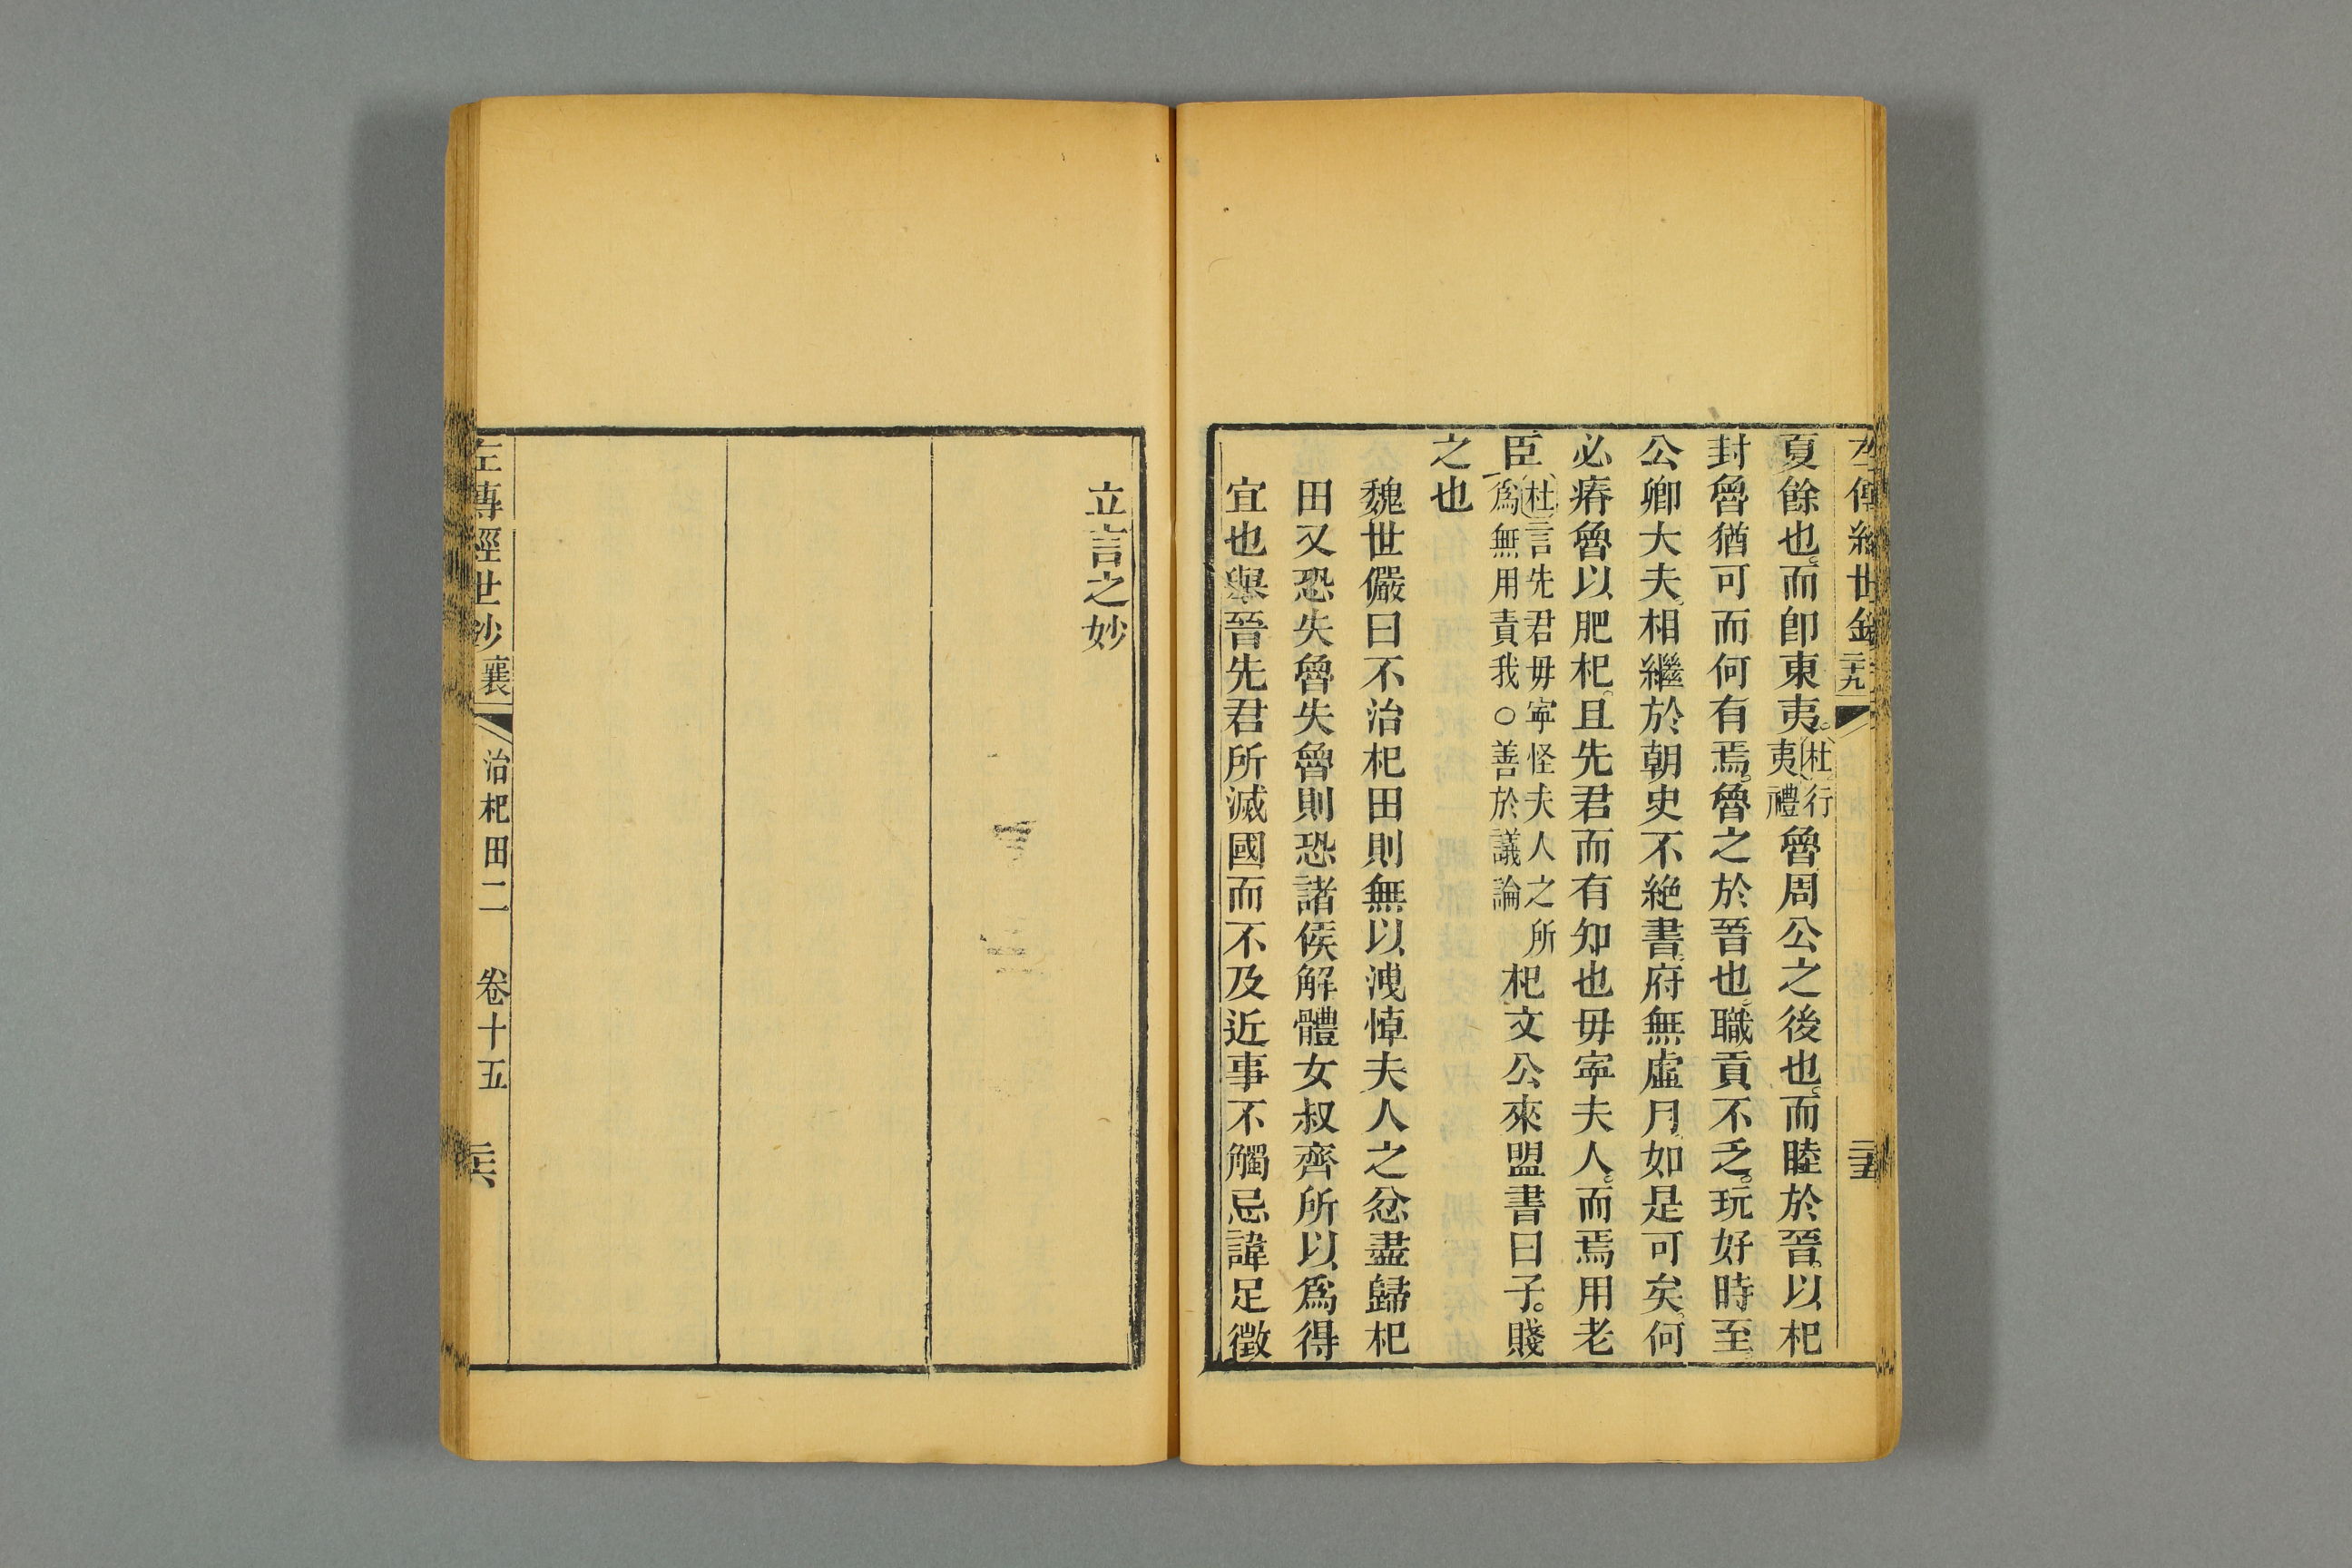 左傳經世鈔 二十九 二十五
夏餘也。而卽東夷。杜行夷禮魯周公之後也。而睦於晉。以杞
封魯猶可而何有焉。魯之於晉也。職貢不乏。玩好時至。
公卿大夫。相繼於朝史不絶書。府無虛月。如是可矣。何
必瘠魯以肥杞。且先君而有知也毋寧夫人。而焉用老
臣杜言先君毋寧怪夫人之所爲無用責我○善於議論杞文公來盟書曰子。賤
之也
魏世儼曰不治杞田則無以洩悼夫人之忿盡歸杞
田又恐失魯失魯則恐諸侯解體女叔齊所以爲得
宜也舉晉先君所滅國而不及近事不觸忌諱足徵
立言之妙
左傳經世鈔 襄 治杞田二 卷十五 二十六